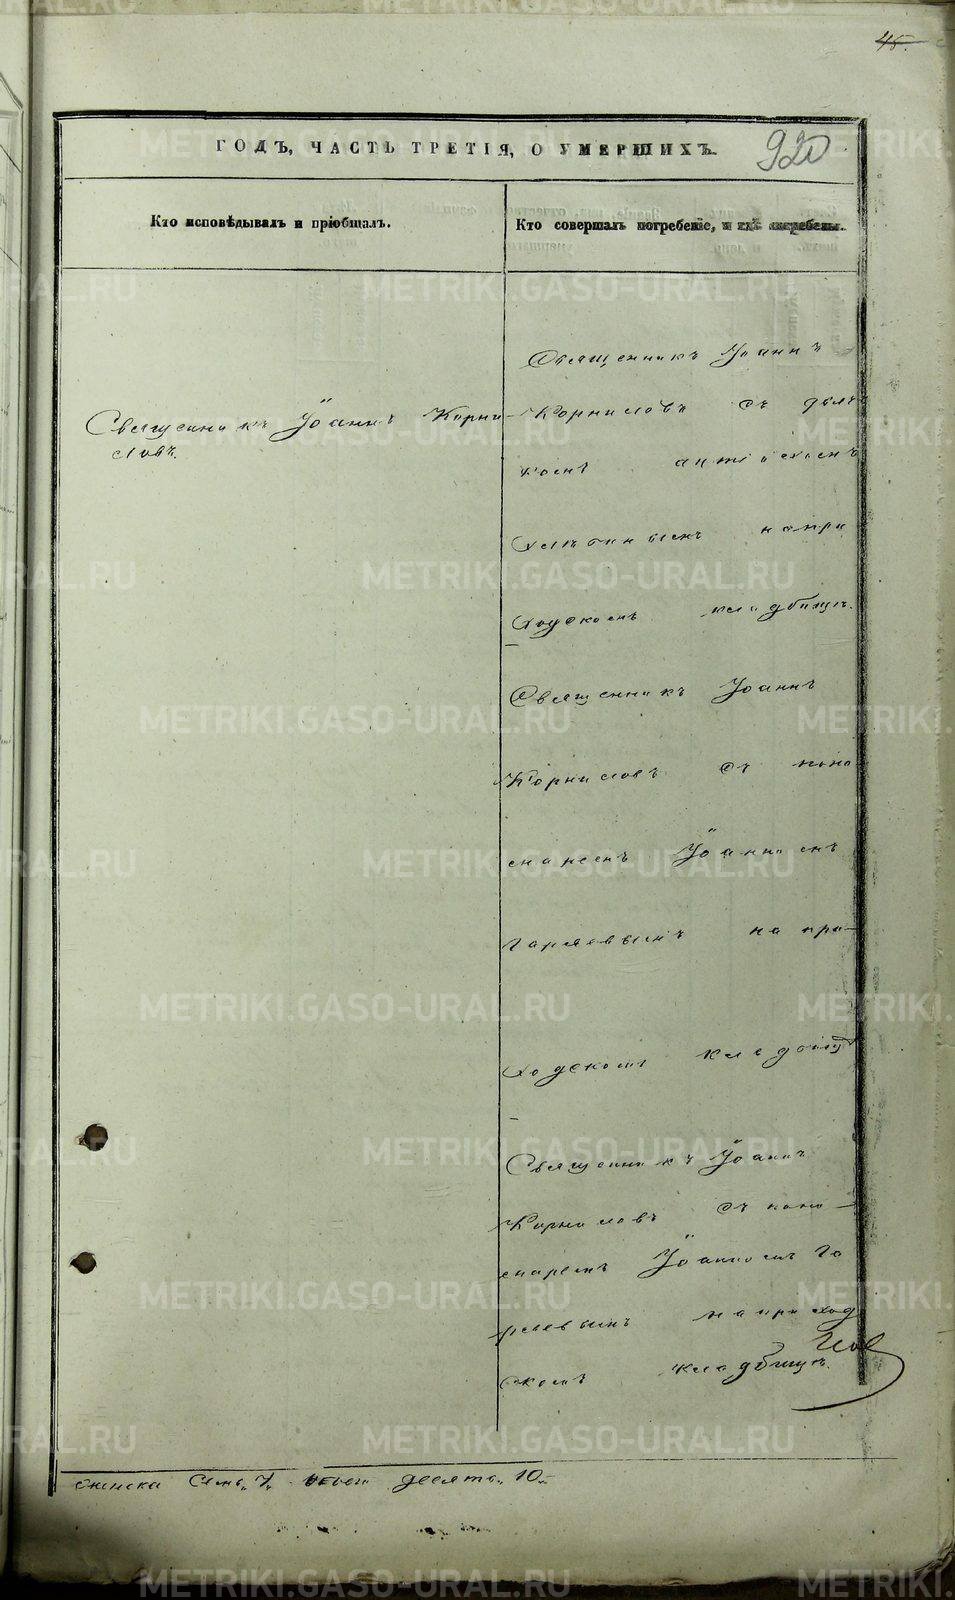 45.
ГОДЪ, ЧАСТЬ ТРЕТІЯ, О УМЕРШИХЪ.
920
Кто исповѣдывалъ и пріобщалъ.
Кто совершалъ погребеніе, и гдѣ погребены.
Священникъ Іоаннъ Корни-
ловъ.
Священникъ Іоаннъ
Корниловъ съ дьяч
комъ
на при
ходскомъ кладбищѣ.
Священникъ Іоаннъ
Корниловъ съ поно
маремъ Іоанномъ
Гаряевымъ на при-
ходскомъ кладбищѣ
Священникъ Іоаннъ
Корниловъ съ поно-
маремъ Іоанномъ Га
ряевымъ на приход
скомъ кладбищѣ.
женска семь 7 обоего десять 10
METRIKI.GASO-URAL.RU